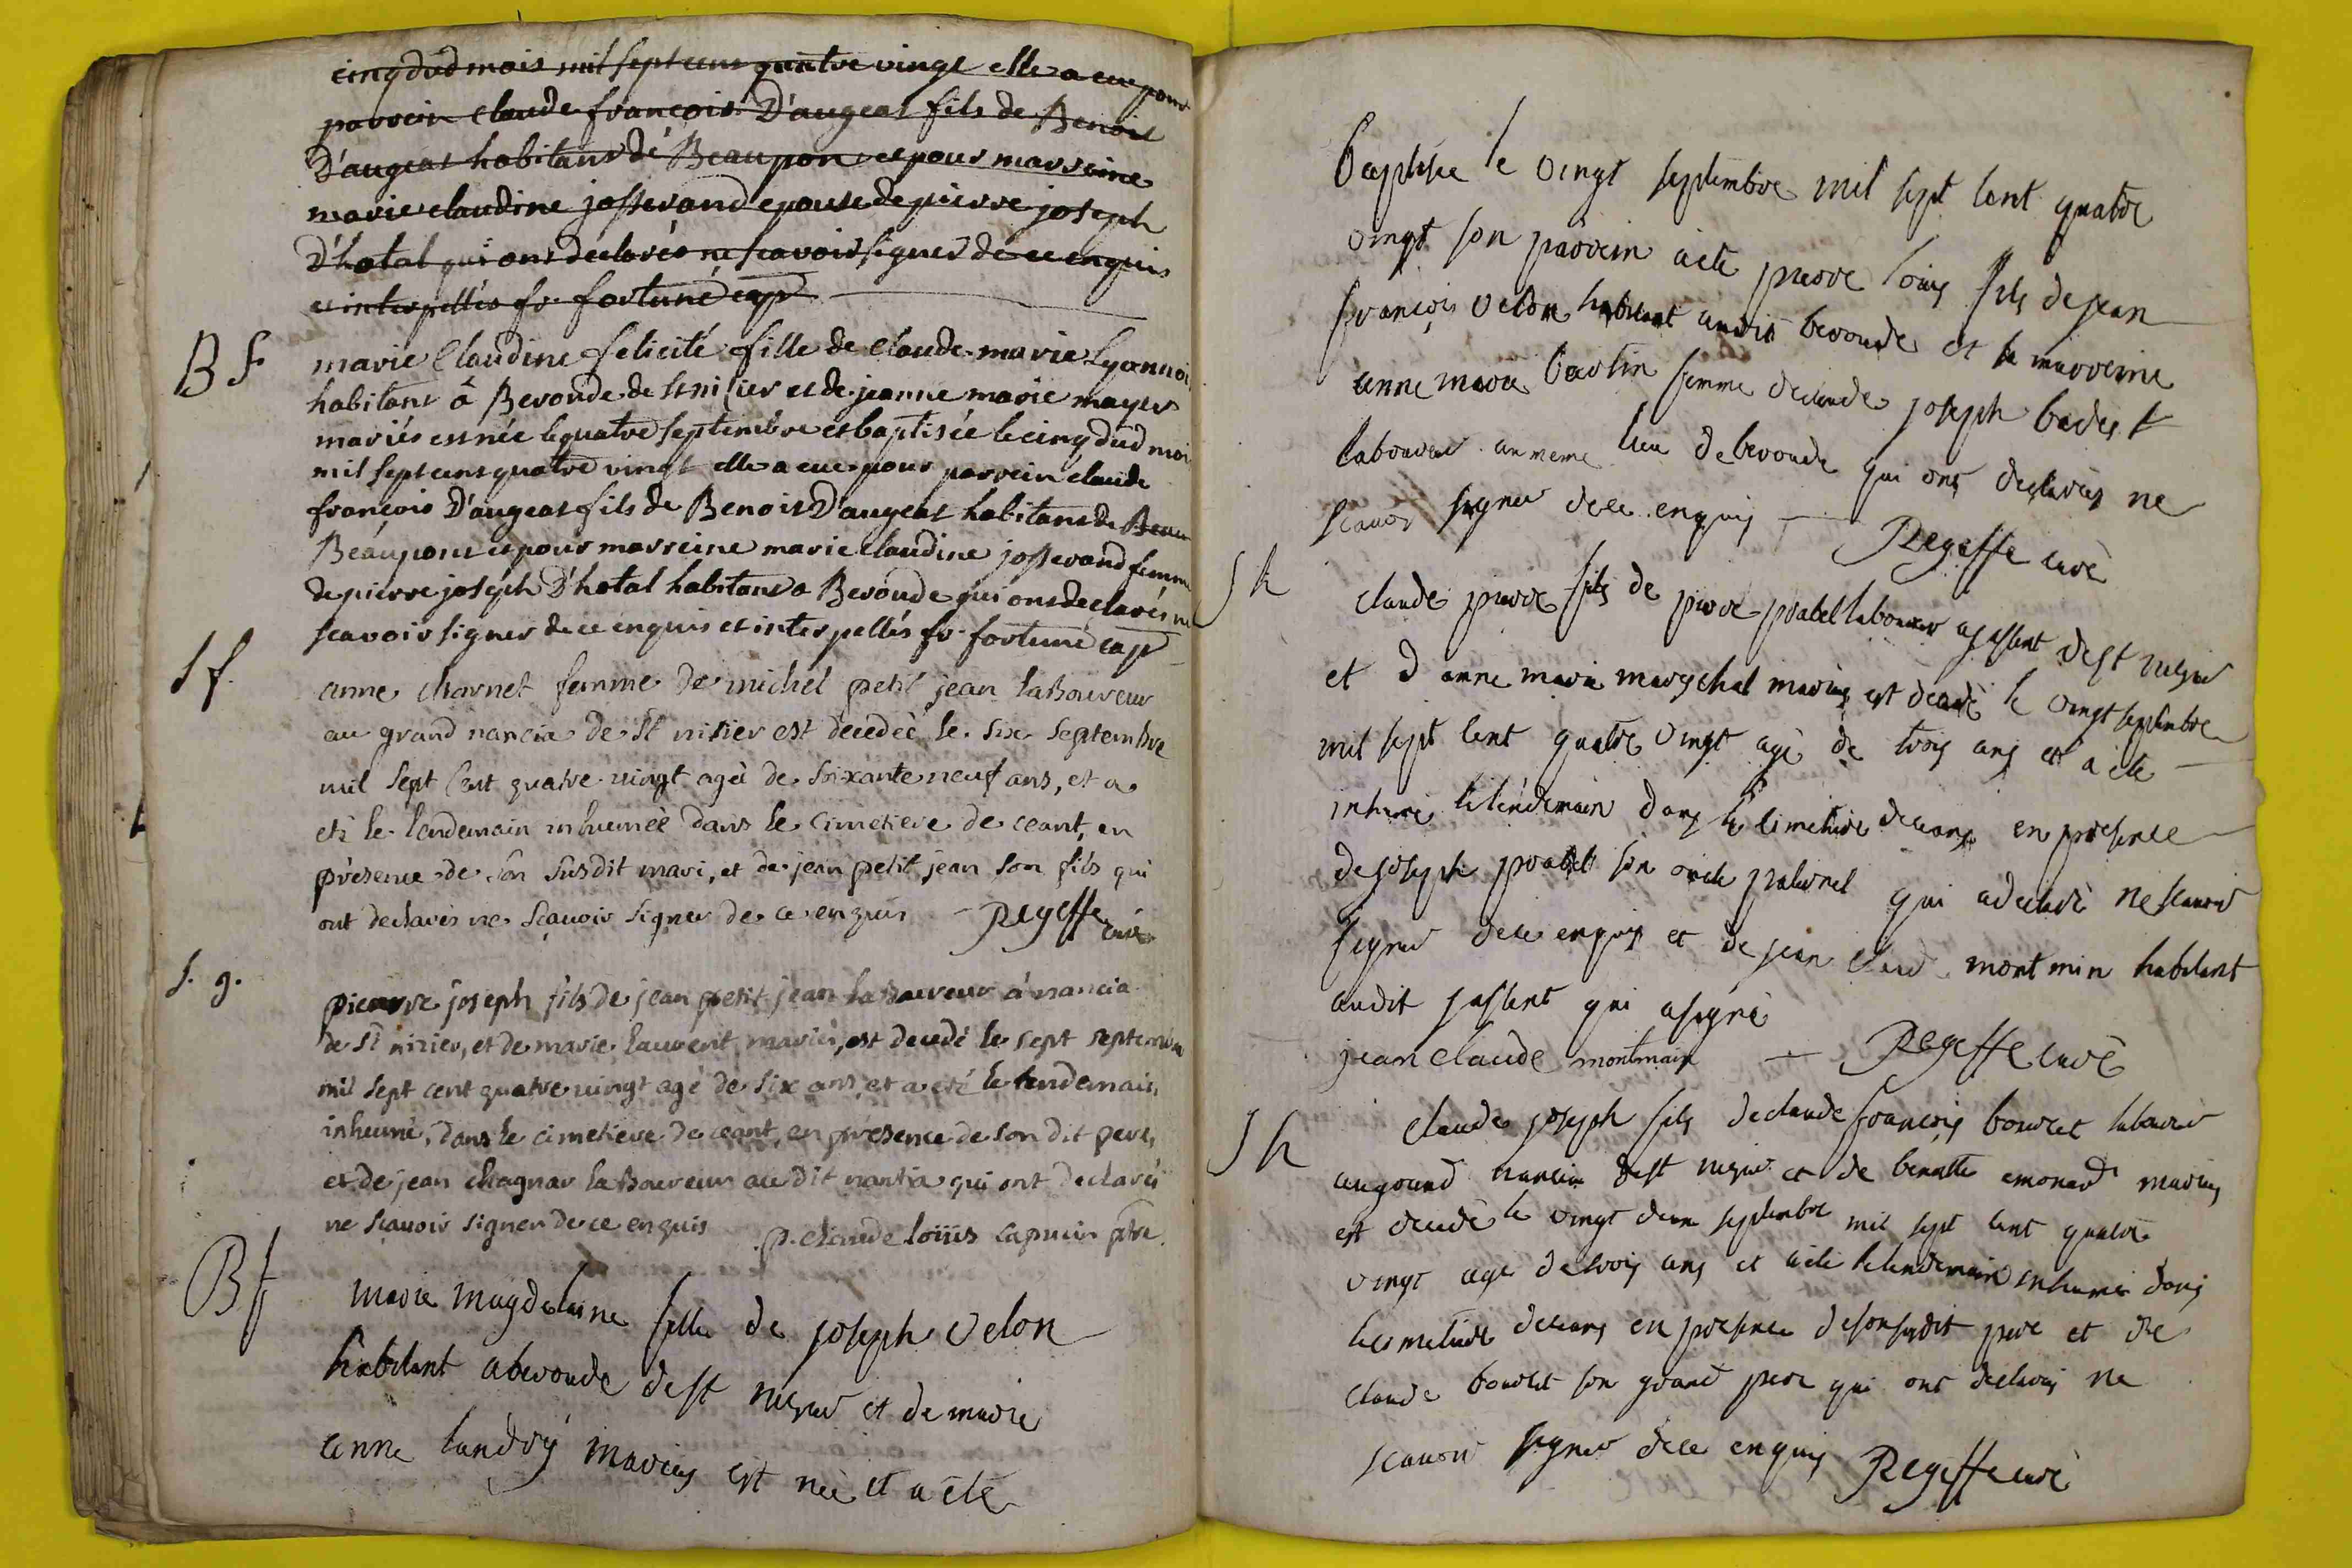 cinq dud mois mil sept cens quatre vingt elle a eue pour
parrein claude françois D'augeat fils de Benoit
D'augeat habitans de Beaupon et pour marreine
marie claudine josserand epouse de pierre joseph
D'hotal qui ons déclarés ne scavoir signer de ce enquis
et interpellés fr. fortuné cap
B f
marie Claudine felicité fille de Claude marie Lyonnoi
habitans à Beronde de st nisier et de jeanne marie mayer
mariés est née le quatre septembre et baptisée le cinq dud moi
mil sept cens quatre vingt elle a eue pour parrein claude
françois D'augeat fils de Benoit D'augeat habitans de Beau
Beaupont et pour marreine marie claudine josserand femme
de pierre joseph D'hotal habitans a Beronde qui ons declarés ne
scavoir signer de ce enquis et interpellés fr. fortuné cap
S f.
anne charnet femme de michel petit jean laboureur
au grand nancia de st nisier est décédéé le six septembre
mil sept Cent quatre vingt agéé de soixante neuf ans, et a
eté le lendemain inhumée dans le cimetiere de ceant, en
présence de son susdit mari, et de jean petit jean son fils qui
ont declarés ne sçavoir signer de ce enquis Regeffe curé
S. g.
pierre joseph fils de jean petit jean laboureur à nancia
de st nizier, et de marie laurent mariés, est decedé le sept septembre
mil sept cent quatre vingt agé de six ans et a eté le lendemain,
inhumé, dans le cimetiere de ceant, en présence de son dit pere,
et de jean chagnar laboureur au dit nantia qui ont declaré
ne scavoir signer de ce enquis p. claude loüis capucin ptre.
B f
marie magdelaine fille de joseph velon
habitant a beronde de st nizier et de marie
anne landry mariés est née et a eté
baptisée le vingt septembre mil sept cent quatre
vingt son parrein a eté pierre loüis fils de jean
françois velon habitant audit beronde et sa marreine
anne marie bertin femme de claude joseph badet
laboureur au meme lieu de beronde qui ont declarés ne
scavoir signer de ce enquis Regeffe curé
S h
claude pierre fils de pierre poatel laboureur a jassent de st nizier
et d anne marie mareschal mariés est decedé le vingt septembre
mil sept cent quatre vingt agé de trois ans et a eté
inhumé le lendemain dans le cimetiere de ceans en presence
de joseph poatel son oncle paternel qui a declaré ne scavoir
signer de ce enquis et de jean claude montmin habitant
audit jassent qui a signé
jean claude montmain Regeffe curé
S h
claude joseph fils de claude françois bouvet laboureur
au grand nancia de st nizier et de benoitte emonard mariés
est decedé le vingt deux septembre mil sept cent quatre
vingt agé de trois ans et a eté le lendemain inhumé dans
le cimetiere de ceans en presence de son susdit pere et de
claude bouvet son grand pere qui ont declarés ne
scavoir signer de ce enquis Regeffe curé